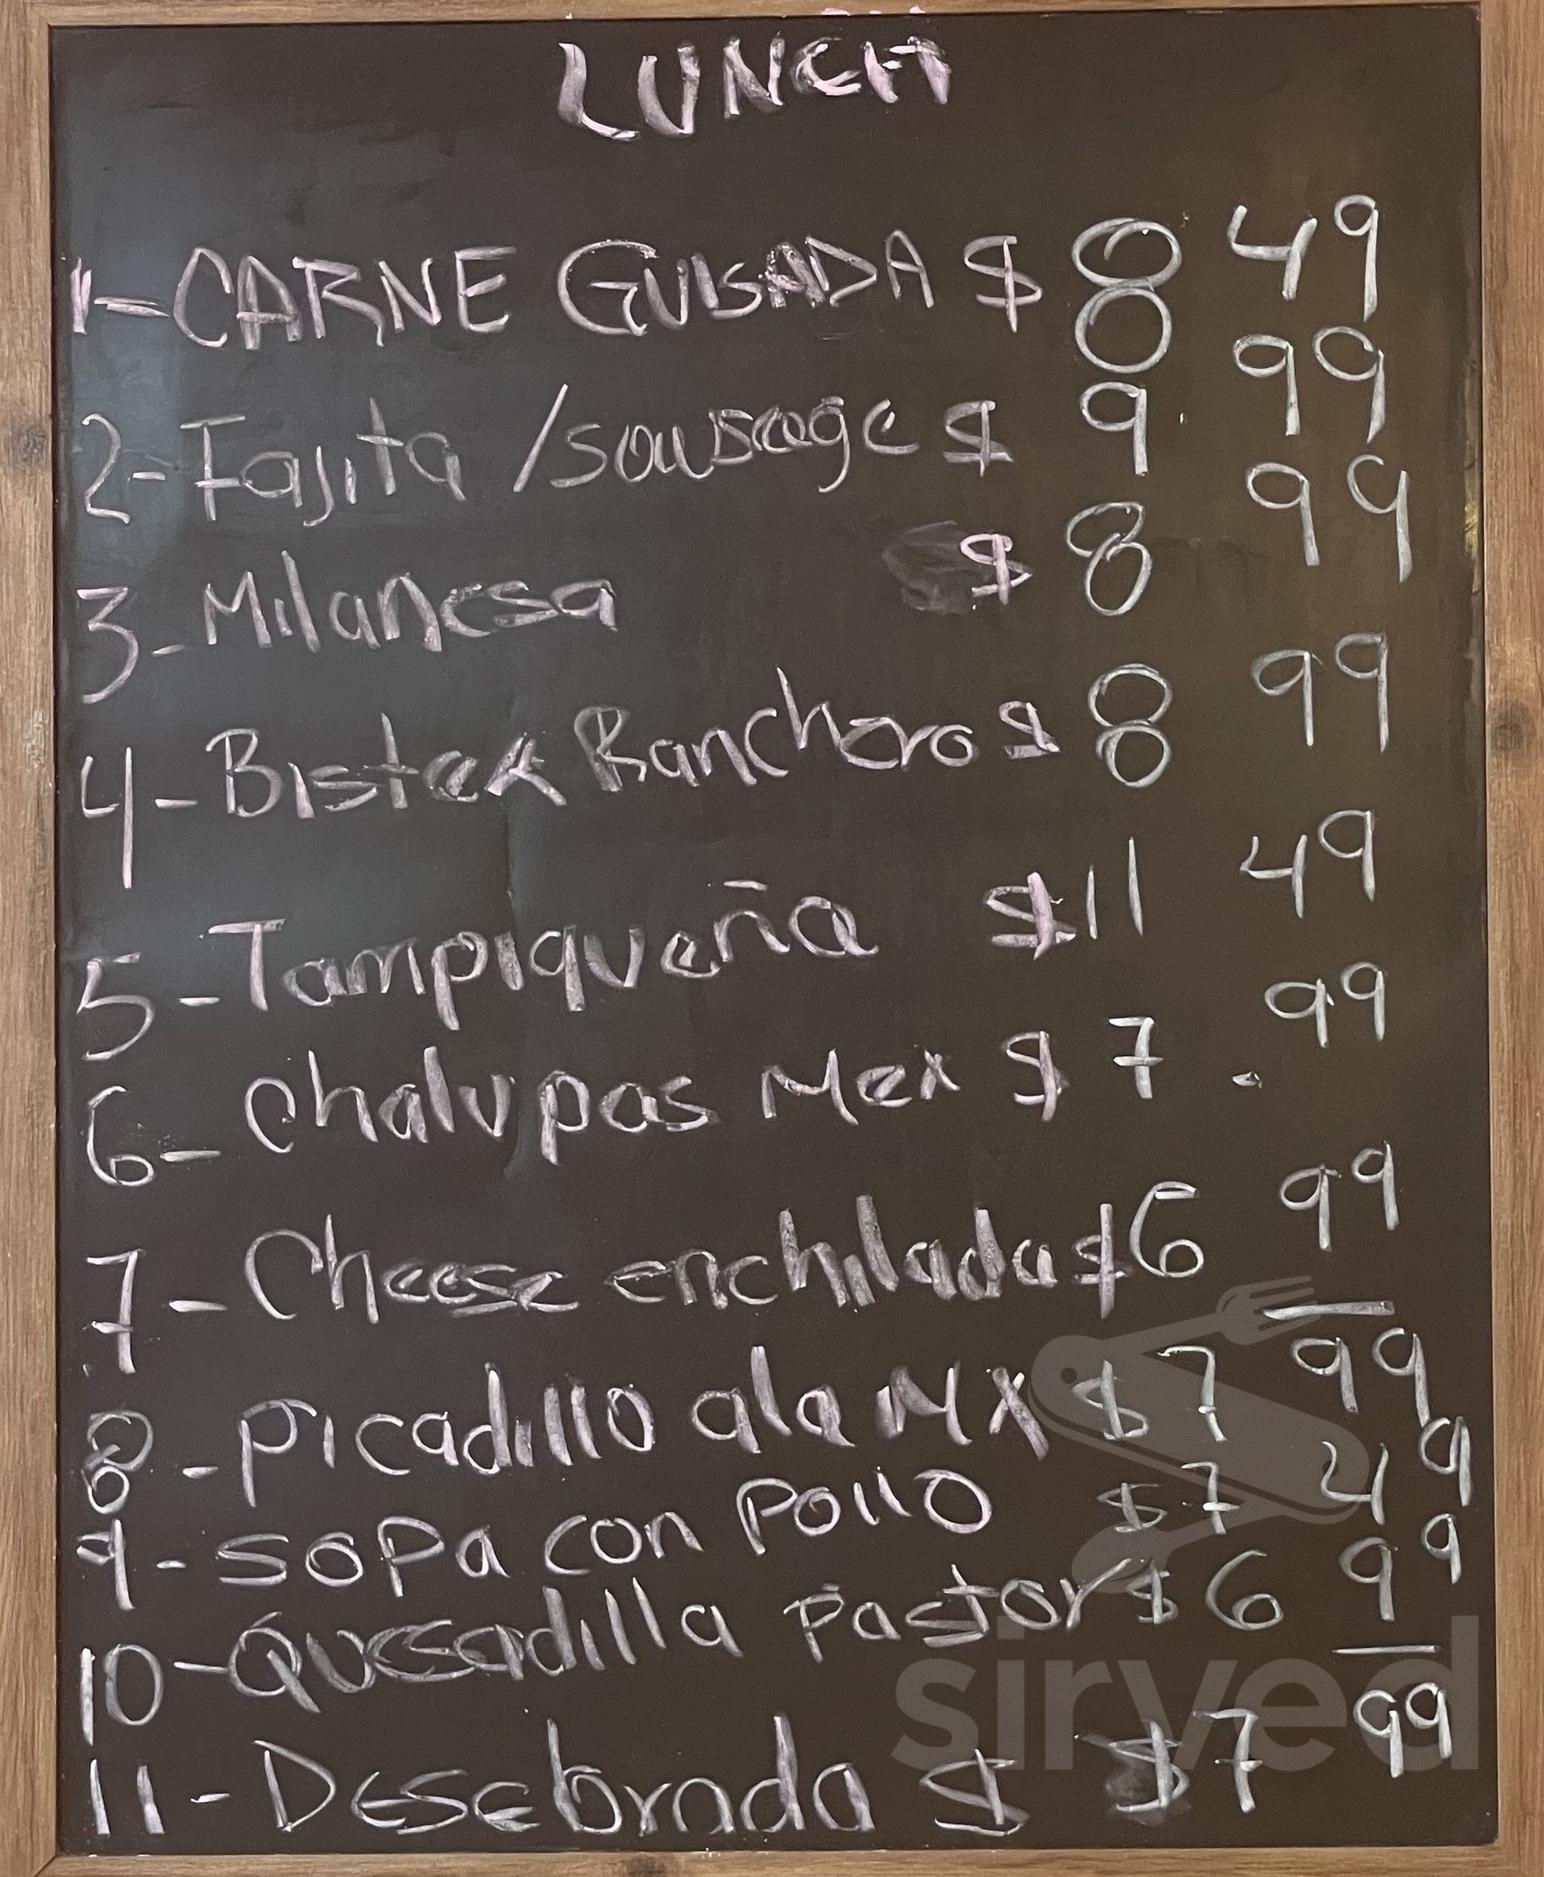 LUNCH
1- CARNE GUISADA $ 8 49
2- Fajita /sausage $ 9. 99
3- Milanesa $ 8 99
4- Bistek Ranchero $ 8 99
5- Tampiqueña $ 11 49
6- chalupas Mex $ 7. 99
7- Cheese enchilada $ 6 99
8- Picadillo ala Mx $ 7 99
9- SOPA con Pollo $ 7 49
10- Quesadilla Pastor $ 6 99
11- Desebrada $ $ 7 99
sirved